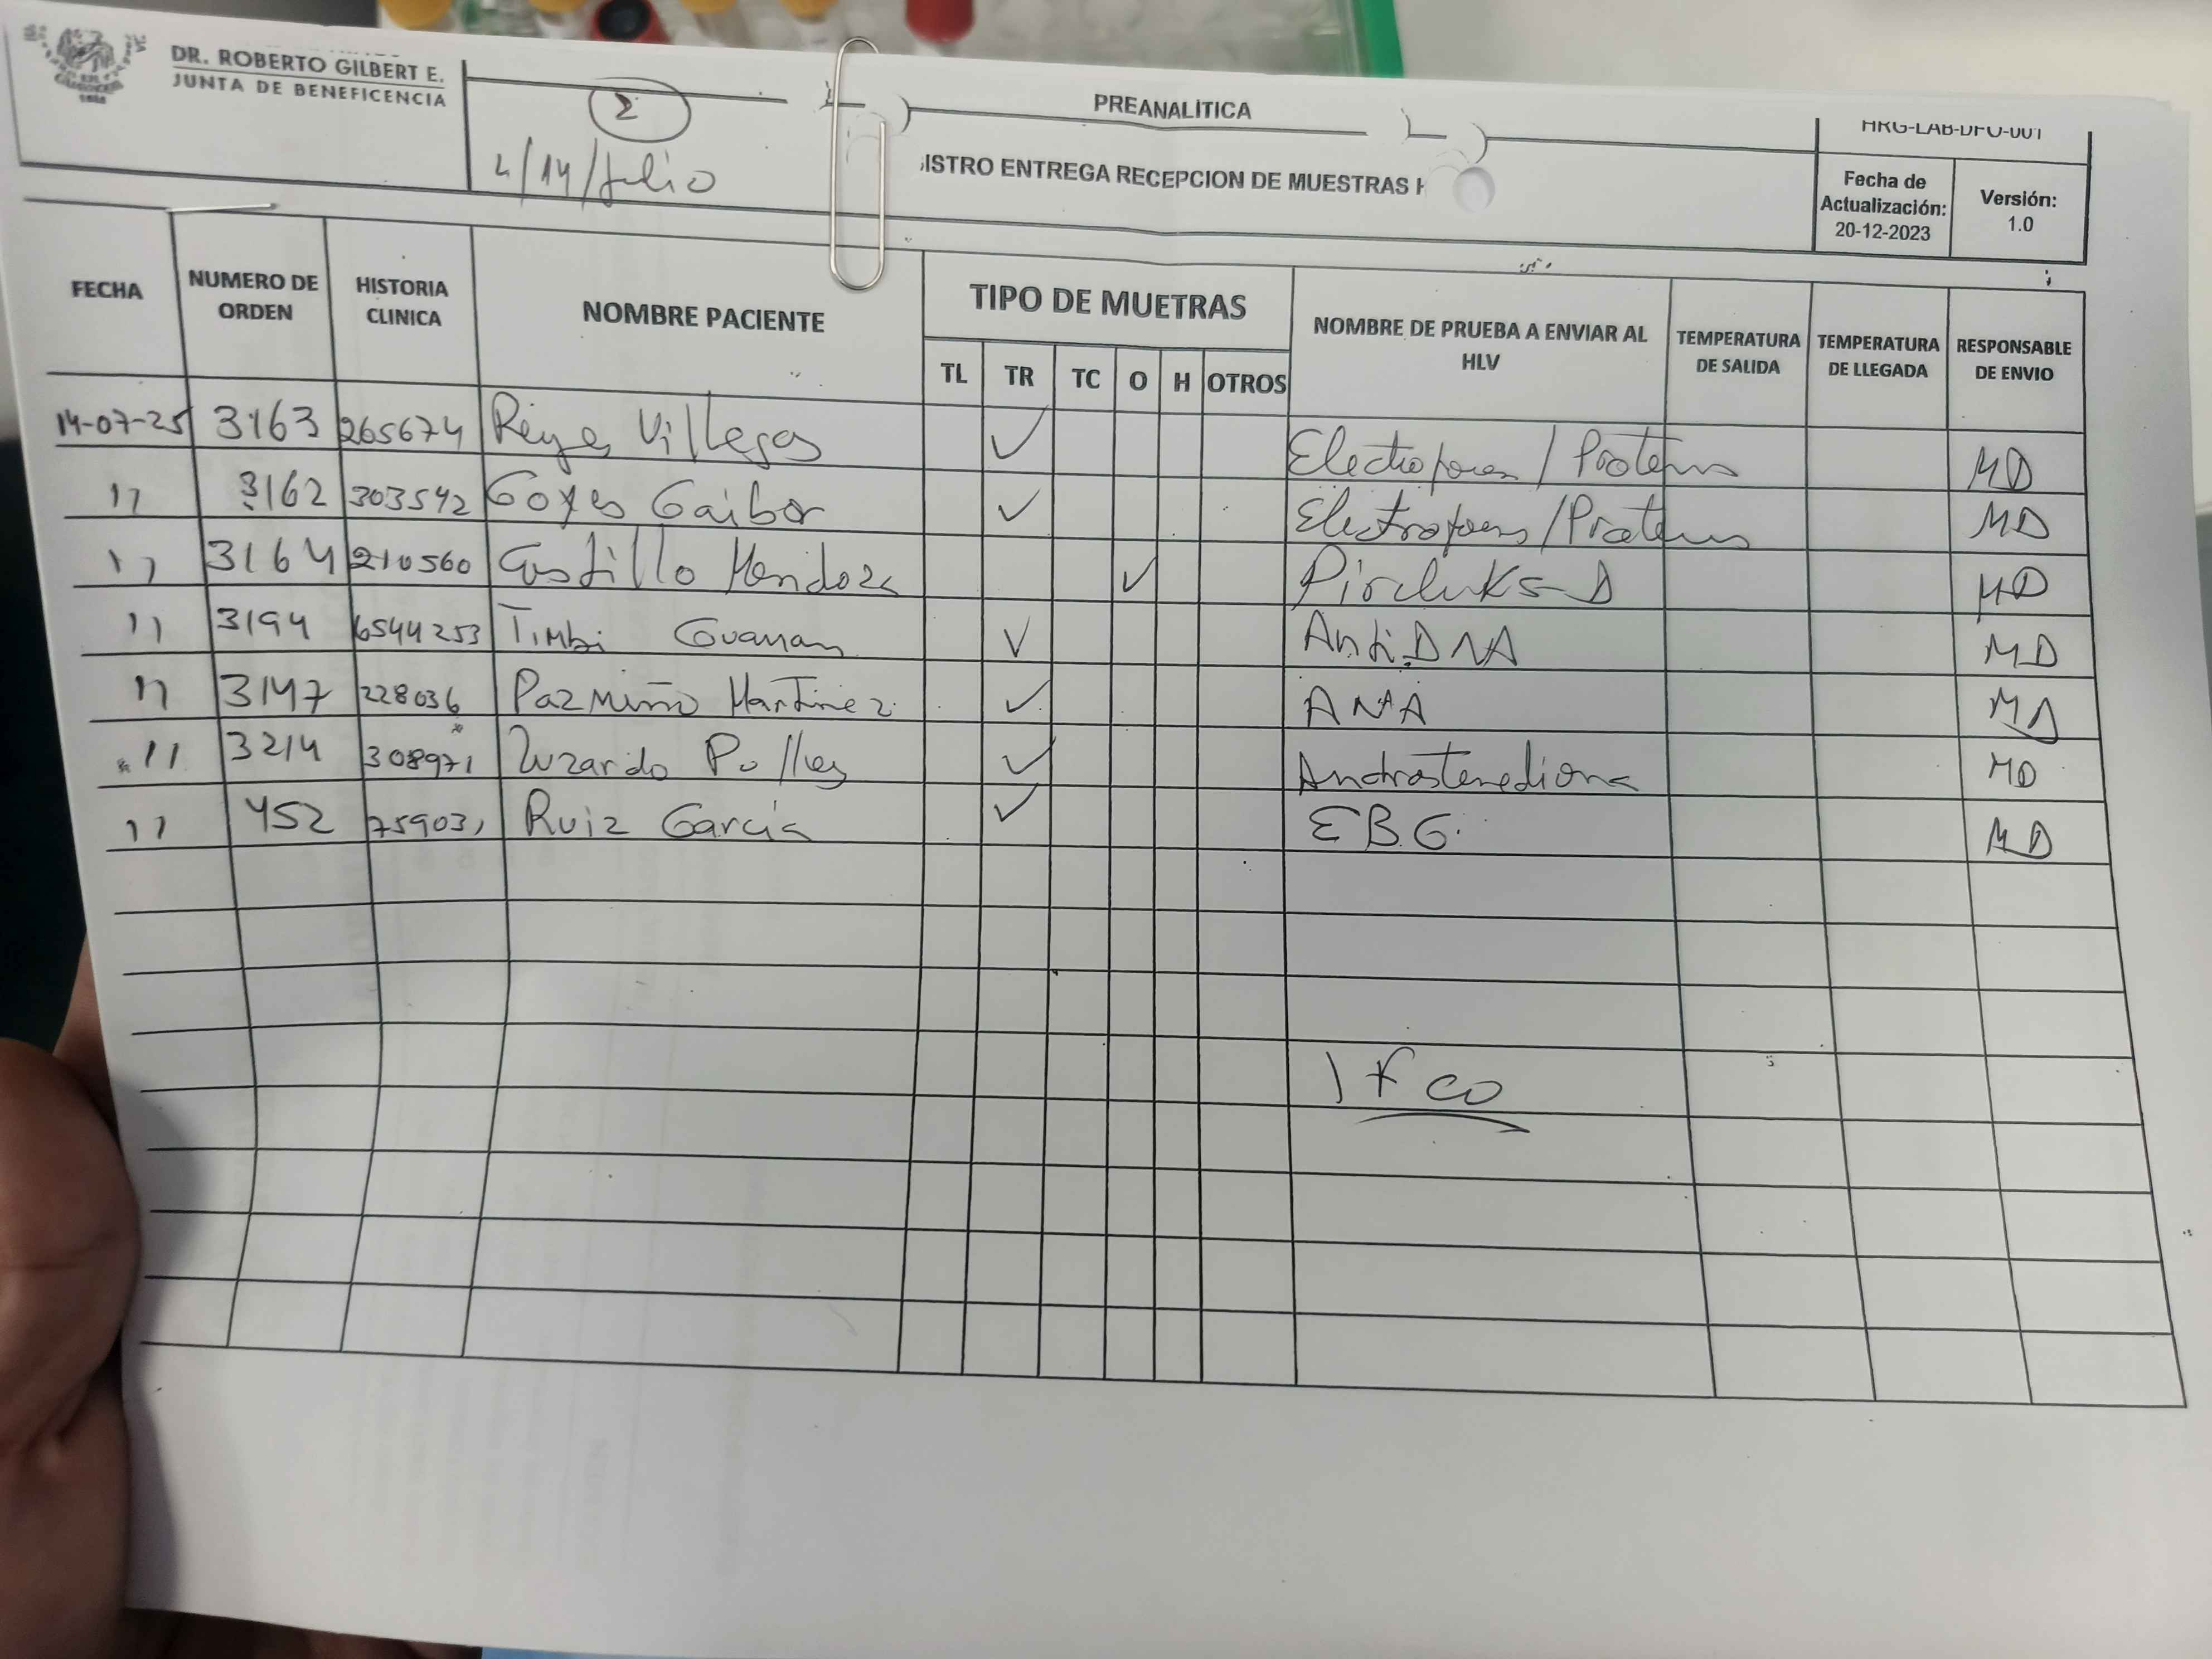 DR. ROBERTO GILBERT E.
JUNTA DE BENEFICENCIA
Σ
4/14/Julio
PREANALÍTICA
ISTRO ENTREGA RECEPCION DE MUESTRAS H
HRG-LAB-DFO-001
Fecha de Actualización: 20-12-2023
Versión: 1.0
FECHA NUMERO DE ORDEN HISTORIA CLINICA NOMBRE PACIENTE TIPO DE MUETRAS NOMBRE DE PRUEBA A ENVIAR AL HLV TEMPERATURA DE SALIDA TEMPERATURA DE LLEGADA RESPONSABLE DE ENVIO
TL TR TC O H OTROS
14-07-25 3163 265674 Reyes Villegas ✓ MD
11 3162 303542 Goyes Gaibor ✓ MD
11 3164 210560 Castillo Mendoza ✓ MD
11 3194 6544253 Timbi ✓ Anti DNA MD
11 3147 228036 Pazmiño Martinez ✓ ANA MD
11 3214 308971 Luzardo ✓ Androstenediona MD
11 452 Ruiz Garcia ✓ EBG. MD